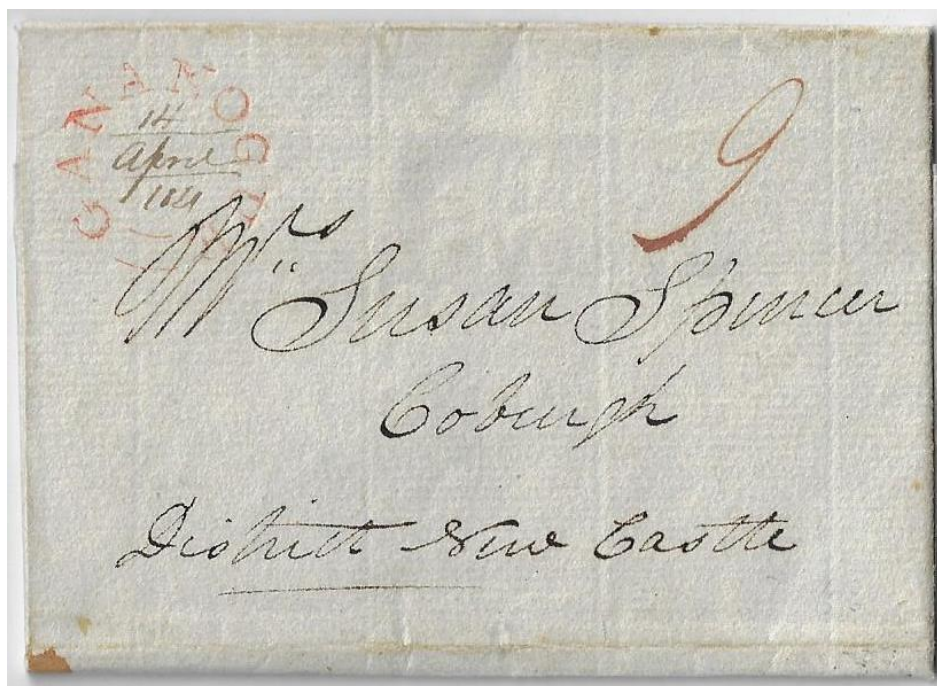 GANANOQUE
14
April
1821
9
Mrs Susan Spencer
Coburgh
District New Castle